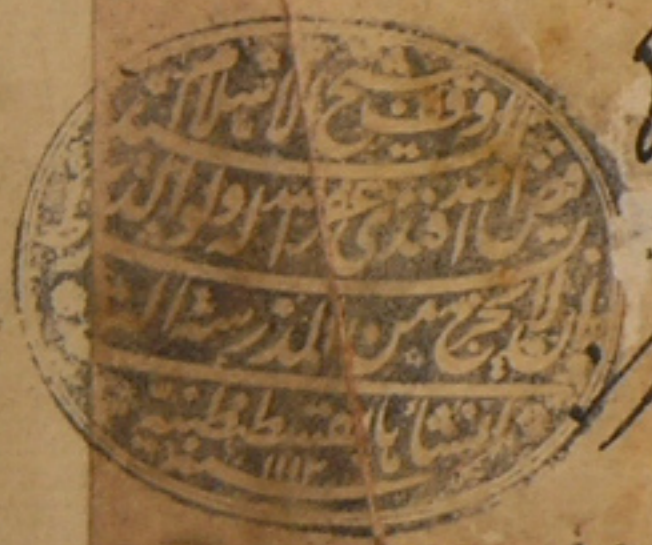 وقف شيخ الاسلام السيد
فيض الله افندى غفر الله له ولوالديه
بشرط ان لا يخرج من المدرسة التى
انشأها بالقسطنطينية
سنه ١١١٢